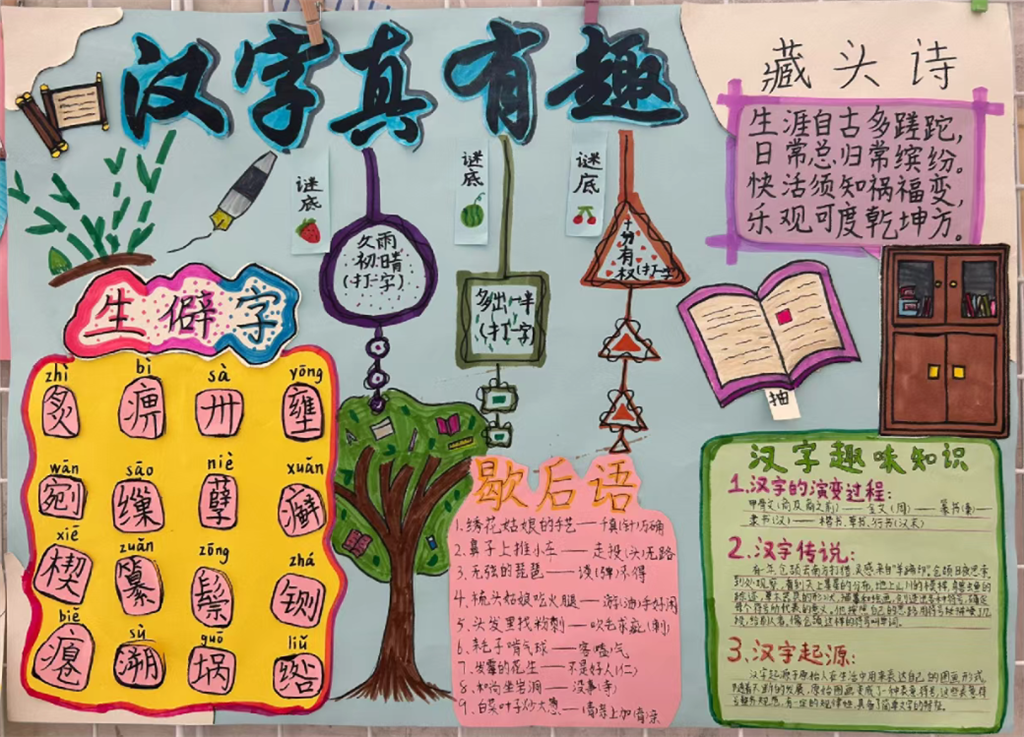 汉字真有趣
藏头诗
生涯自古多蹉跎，
日常总归常缤纷。
快活须知祸福变，
乐观可度乾坤方。
谜底
谜底
谜底
久雨
初晴
(打一字)
多出一半
(打一字)
十分有
权(打一字)
抽
生僻字
zhì bì sà yōng
炙 痹 卅 壅
wān sāo niè xuǎn
剜 缫 孽 癣
xiē zuǎn zōng zhá
楔 纂 鬃 铡
biē sù guō liǔ
瘪 溯 埚 绺
歇后语
1.绣花姑娘的手艺——真(针)方确
2.鼻子上推小车——走投(头)无路
3.无弦的琵琶——谈(弹)不得
4.梳头姑娘吃火腿——游(油)手好闲
5.头发里找粉刺——吹毛求疵(刺)
6.耗子啃气球——客嗑气
7.发霉的花生——不是好人(仁)
8.和尚坐岩洞——没事(寺)
9.白菜叶子炒大葱——(青)亲上加(青)亲
汉字趣味知识
1.汉字的演变过程：
甲骨文(商)——金文(周)——篆书(秦)——
隶书(汉)——楷书、草书、行书(汉末)
2.汉字传说：
3.汉字起源：
汉字起源于原始人在生活中用来表达自己的图画形式